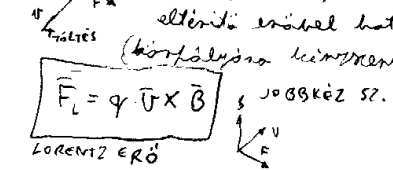 v F eltérítő erővel hat
TÖLTÉS
(körpályára kényszer
F̄L = q · v̄ × B̄
JOBBKÉZ SZ.
LORENTZ ERŐ
B
v
F